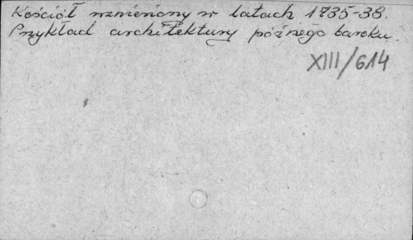 Kościół wzniesiony w latach 1735-38.
Przykład architektury późnego baroku.
XIII/614